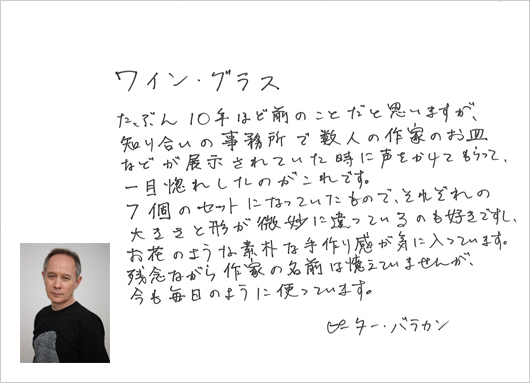 ワイン・グラス
たぶん10年ほど前のことだと思いますが、
知り合いの事務所で数人の作家のお皿
などが展示されていた時に声をかけてもらって、
一目惚れしたのがこれです。
7個のセットになっていたもので、それぞれの
大きさと形が微妙に違っているのも好きですし、
お花のような素朴な手作り感が気に入っています。
残念ながら作家の名前は憶えていませんが、
今も毎日のように使っています。
ピーター・バラカン